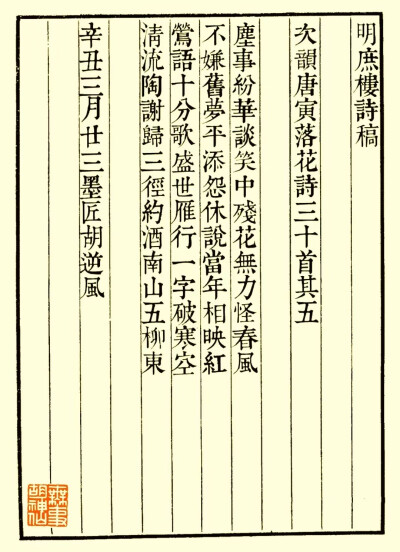 明庶樓詩稿
次韻唐寅落花詩三十首其五
塵事紛華談笑中殘花無力怪春風
不嫌舊夢平添怨休說當年相映紅
鶯語十分歌盛世雁行一字破寒空
清流陶謝歸三徑約酒南山五柳東
辛丑三月廿三墨匠胡逆風